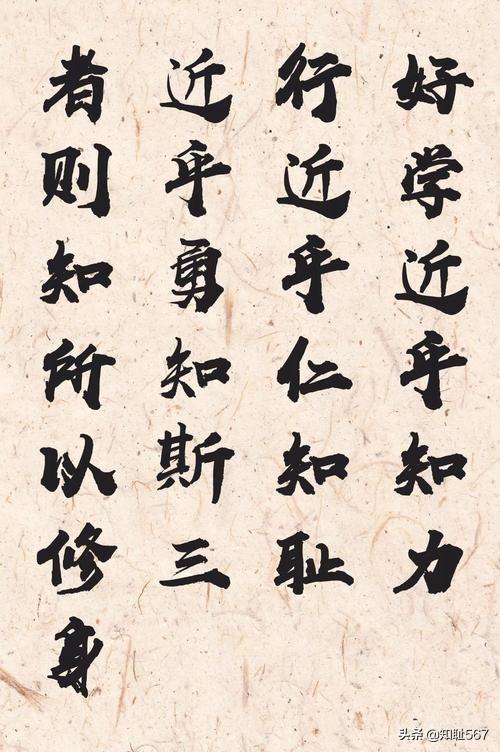 好学近乎知力
行近乎仁知耻
近乎勇知斯三
者则知所以修身
头条 @知耻567